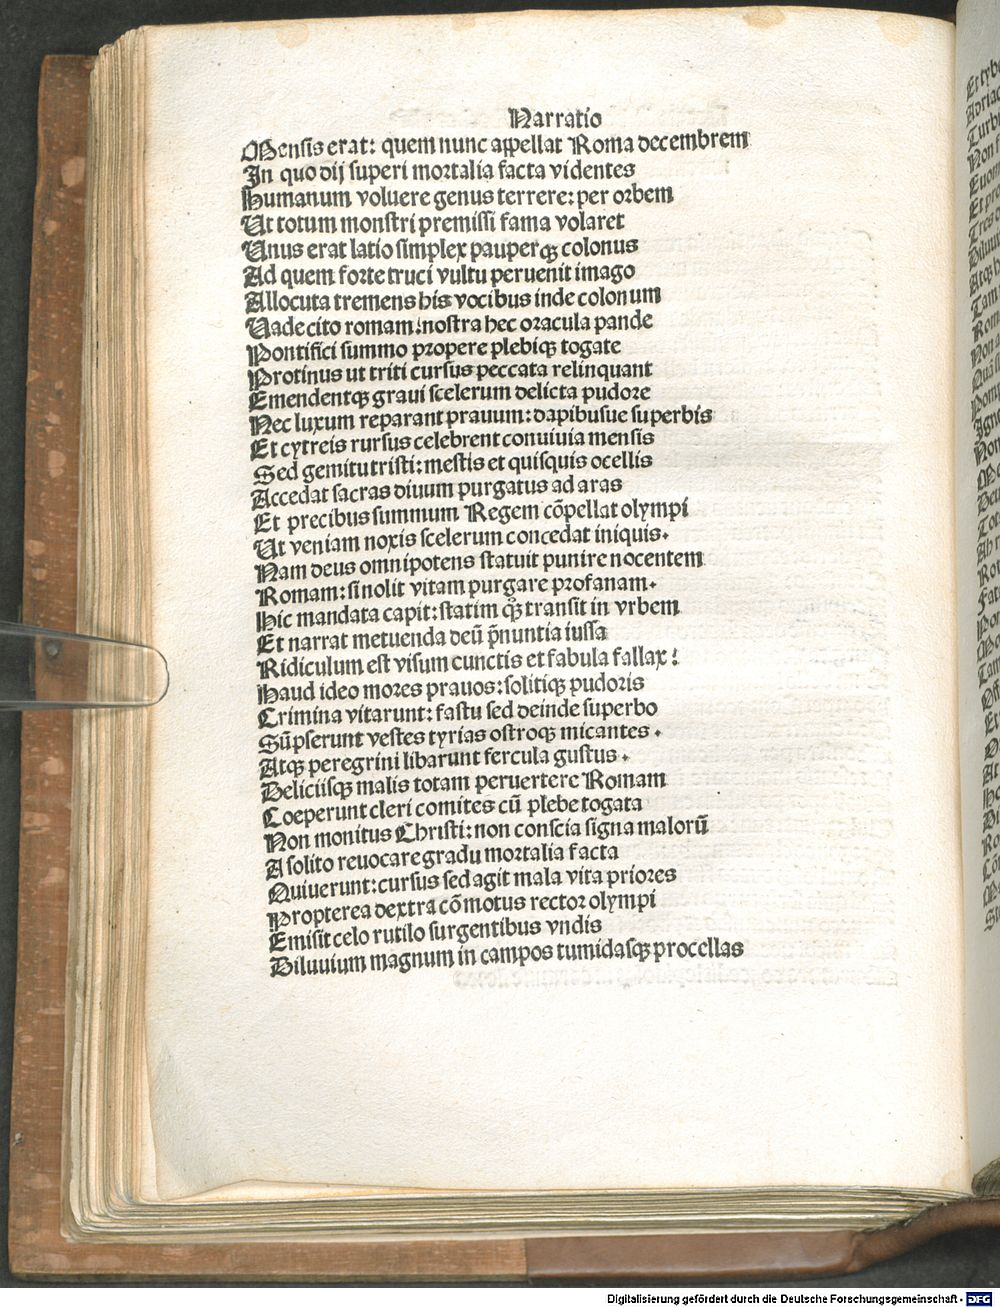 Narratio
Mensis erat: quem nunc appellat Roma decembrem
In quo dij superi mortalia facta videntes
Humanum voluere genus terrere: per orbem
Ut totum monstri premissi fama volaret
Unus erat latio simplex pauperqꝫ colonus
Ad quem forte truci vultu peruenit imago
Allocuta tremens his vocibus inde colonum
Uade cito romam: nostra hec oracula pande
Pontifici summo propere plebiqꝫ togate
Protinus ut triti cursus peccata relinquant
Emendentqꝫ graui scelerum delicta pudore
Nec luxum reparant prauum: dapibusue superbis
Et cytreis rursus celebrent conuiuia mensis
Sed gemitu tristi: mestis et quisquis ocellis
Accedat sacras diuum purgatus ad aras
Et precibus summum Regem cõpellat olympi
Ut veniam noxis scelerum concedat iniquis.
Nam deus omnipotens statuit punire nocentem
Romam: si nolit vitam purgare profanam.
Hic mandata capit: statim qꝫ transit in vrbem
Et narrat metuenda deũ p̃nuntia iussa
Ridiculum est visum cunctis et fabula fallax:
Haud ideo mores prauos: solitiqꝫ pudoris
Crimina vitarunt: fastu sed deinde superbo
Sũpserunt vestes tyrias ostroqꝫ micantes.
Atqꝫ peregrini libarunt fercula gustus.
Deliciisqꝫ malis totam peruertere Romam
Coeperunt cleri comites cũ plebe togata
Non monitus Christi: non conscia signa malorũ
A solito reuocare gradu mortalia facta
Quiuerunt: cursus sed agit mala vita priores
Propterea dextra cõmotus rector olympi
Emisit celo rutilo surgentibus vndis
Diluuium magnum in campos tumidasqꝫ procellas
Digitalisierung gefördert durch die Deutsche Forschungsgemeinschaft - DFG